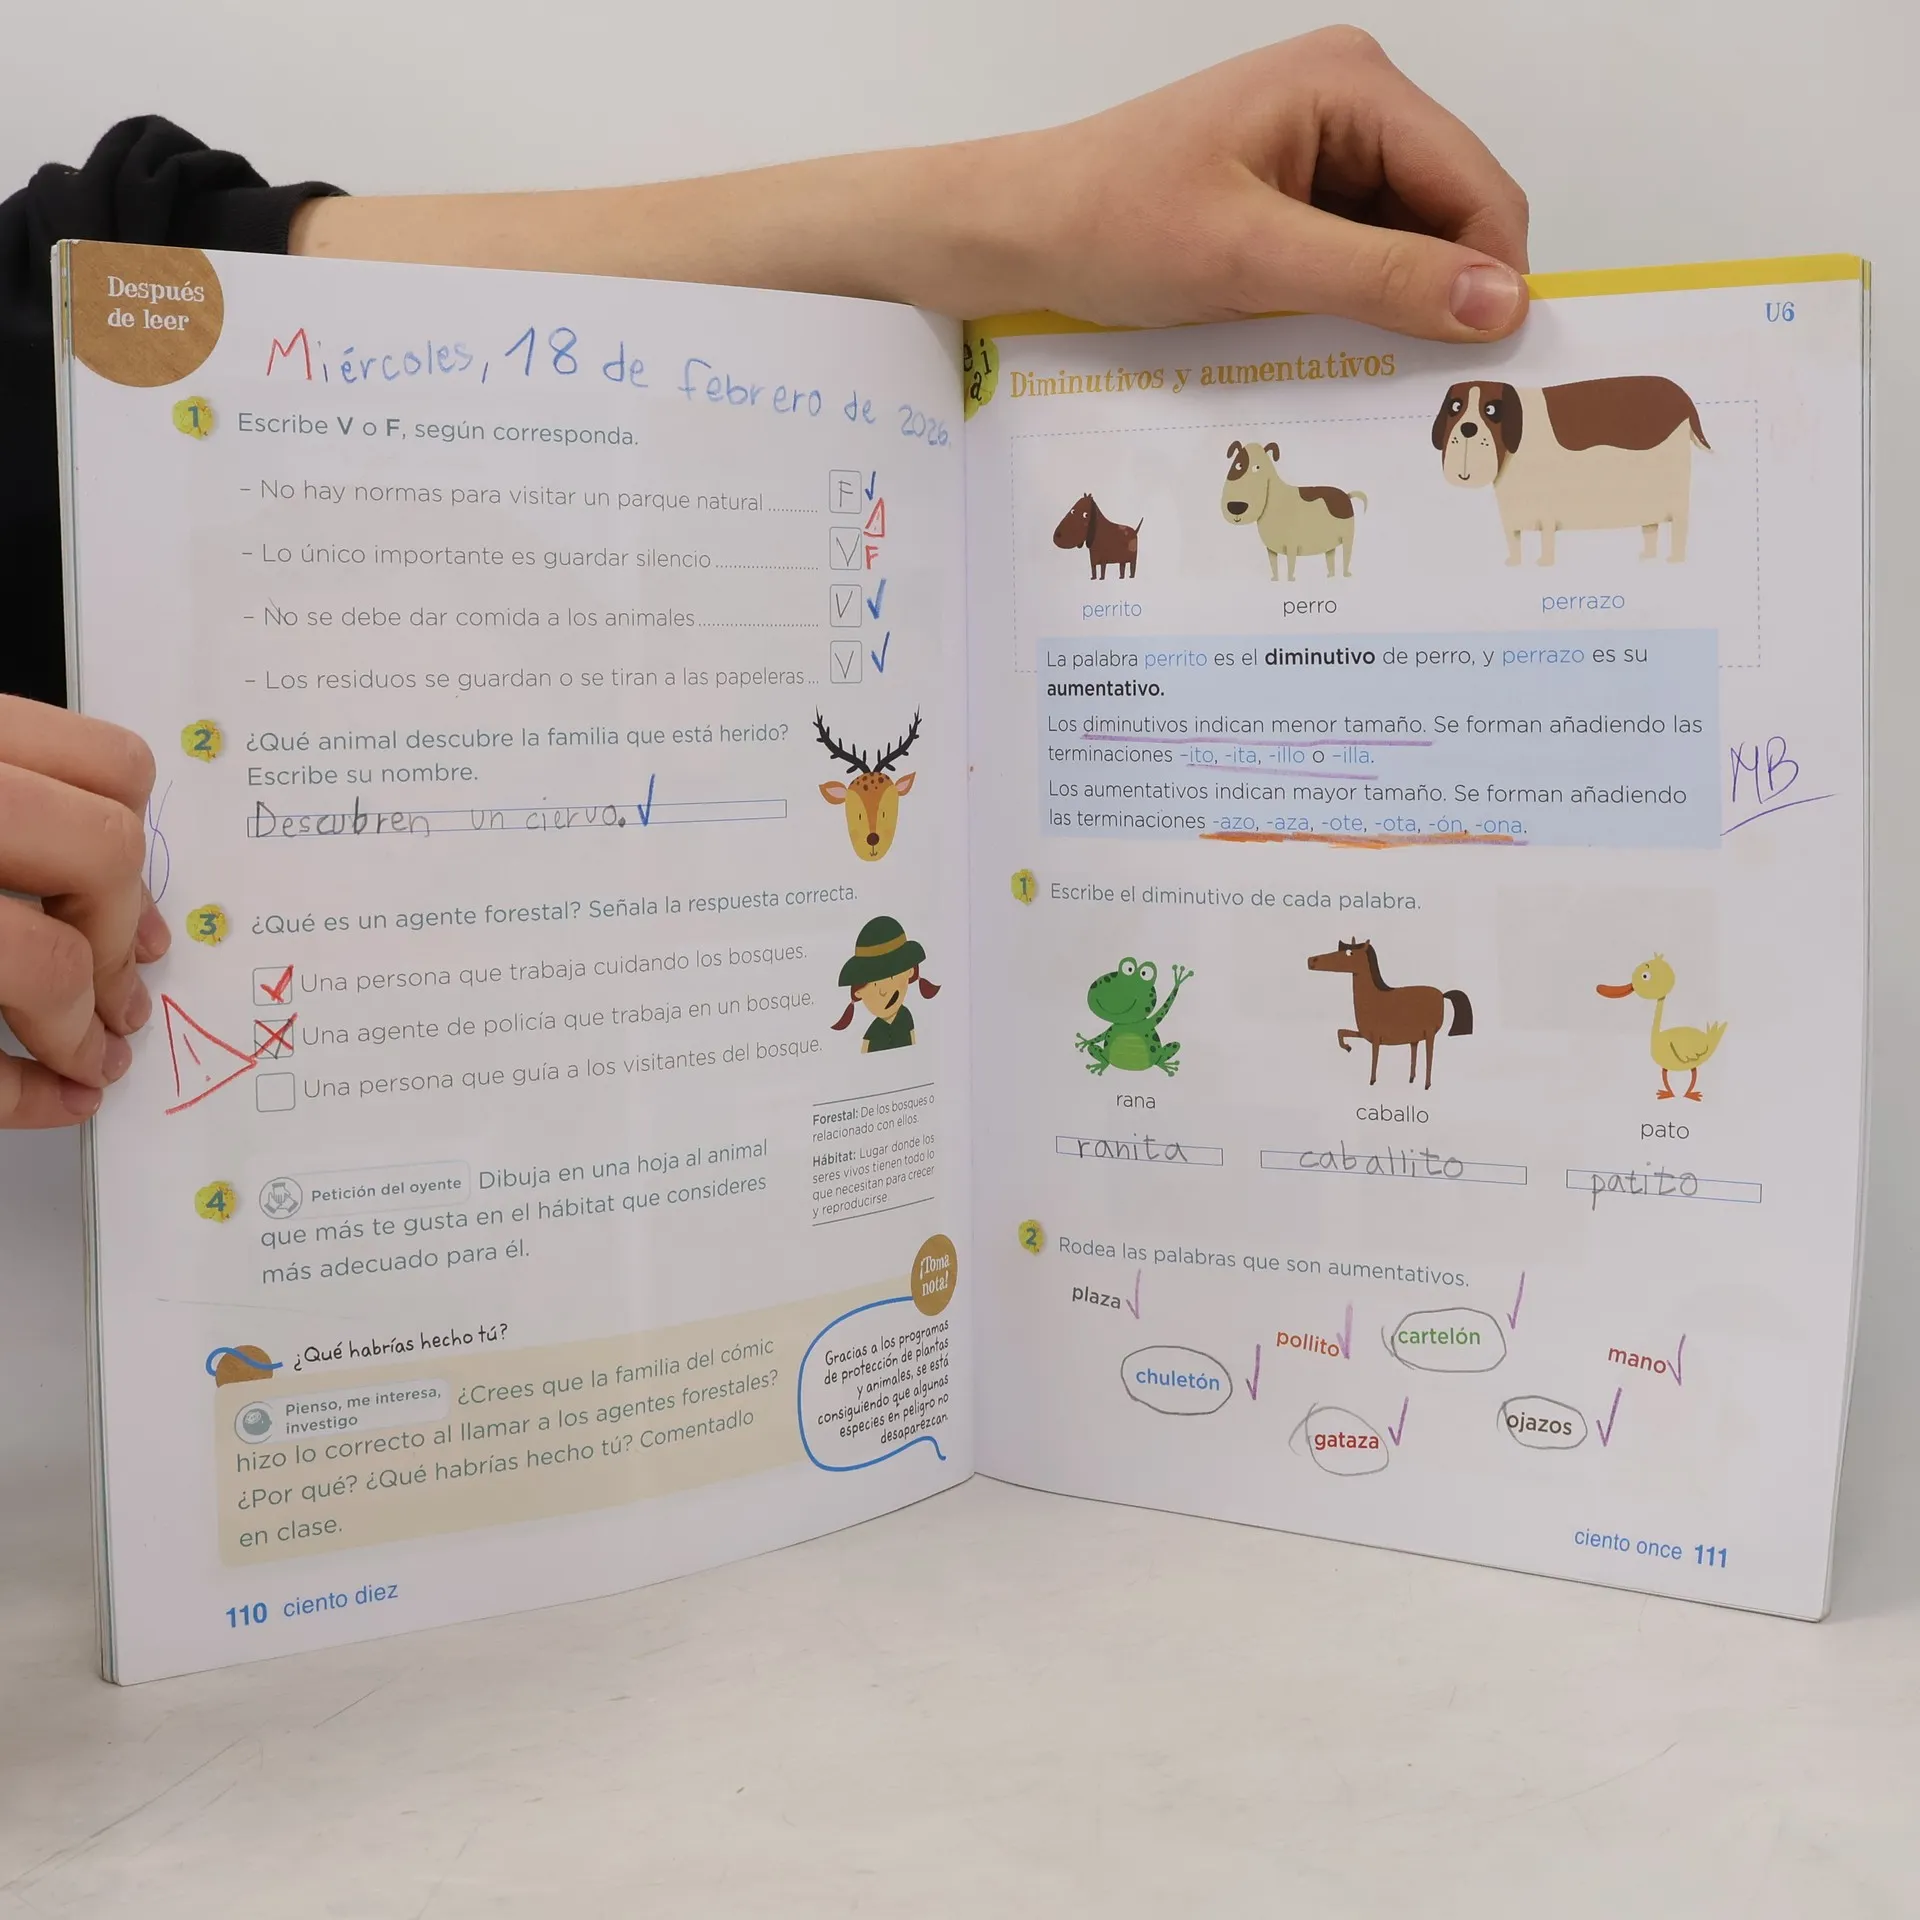 Después
de leer
Miércoles, 18 de febrero de 2026.
1 Escribe V o F, según corresponda.
– No hay normas para visitar un parque natural ........... F
– Lo único importante es guardar silencio ...................... V F
– No se debe dar comida a los animales ......................... V
– Los residuos se guardan o se tiran a las papeleras ... V
2 ¿Qué animal descubre la familia que está herido?
Escribe su nombre.
Descubren un ciervo.
3 ¿Qué es un agente forestal? Señala la respuesta correcta.
Una persona que trabaja cuidando los bosques.
Una agente de policía que trabaja en un bosque.
Una persona que guía a los visitantes del bosque.
Forestal: De los bosques o
relacionado con ellos.
Hábitat: Lugar donde los
seres vivos tienen todo lo
que necesitan para crecer
y reproducirse.
4 Petición del oyente Dibuja en una hoja al animal
que más te gusta en el hábitat que consideres
más adecuado para él.
¡Toma
nota!
Gracias a los programas
de protección de plantas
y animales, se está
consiguiendo que algunas
especies en peligro no
desaparezcan.
¿Qué habrías hecho tú?
Pienso, me interesa,
investigo
¿Crees que la familia del cómic
hizo lo correcto al llamar a los agentes forestales?
¿Por qué? ¿Qué habrías hecho tú? Comentadlo
en clase.
110 ciento diez
U6
e i
a
Diminutivos y aumentativos
perrito perro perrazo
La palabra perrito es el diminutivo de perro, y perrazo es su
aumentativo.
Los diminutivos indican menor tamaño. Se forman añadiendo las
terminaciones -ito, -ita, -illo o -illa.
Los aumentativos indican mayor tamaño. Se forman añadiendo
las terminaciones -azo, -aza, -ote, -ota, -ón, -ona.
MB
1 Escribe el diminutivo de cada palabra.
rana caballo pato
ranita caballito patito
2 Rodea las palabras que son aumentativos.
plaza pollito cartelón mano
chuletón gataza ojazos
ciento once 111